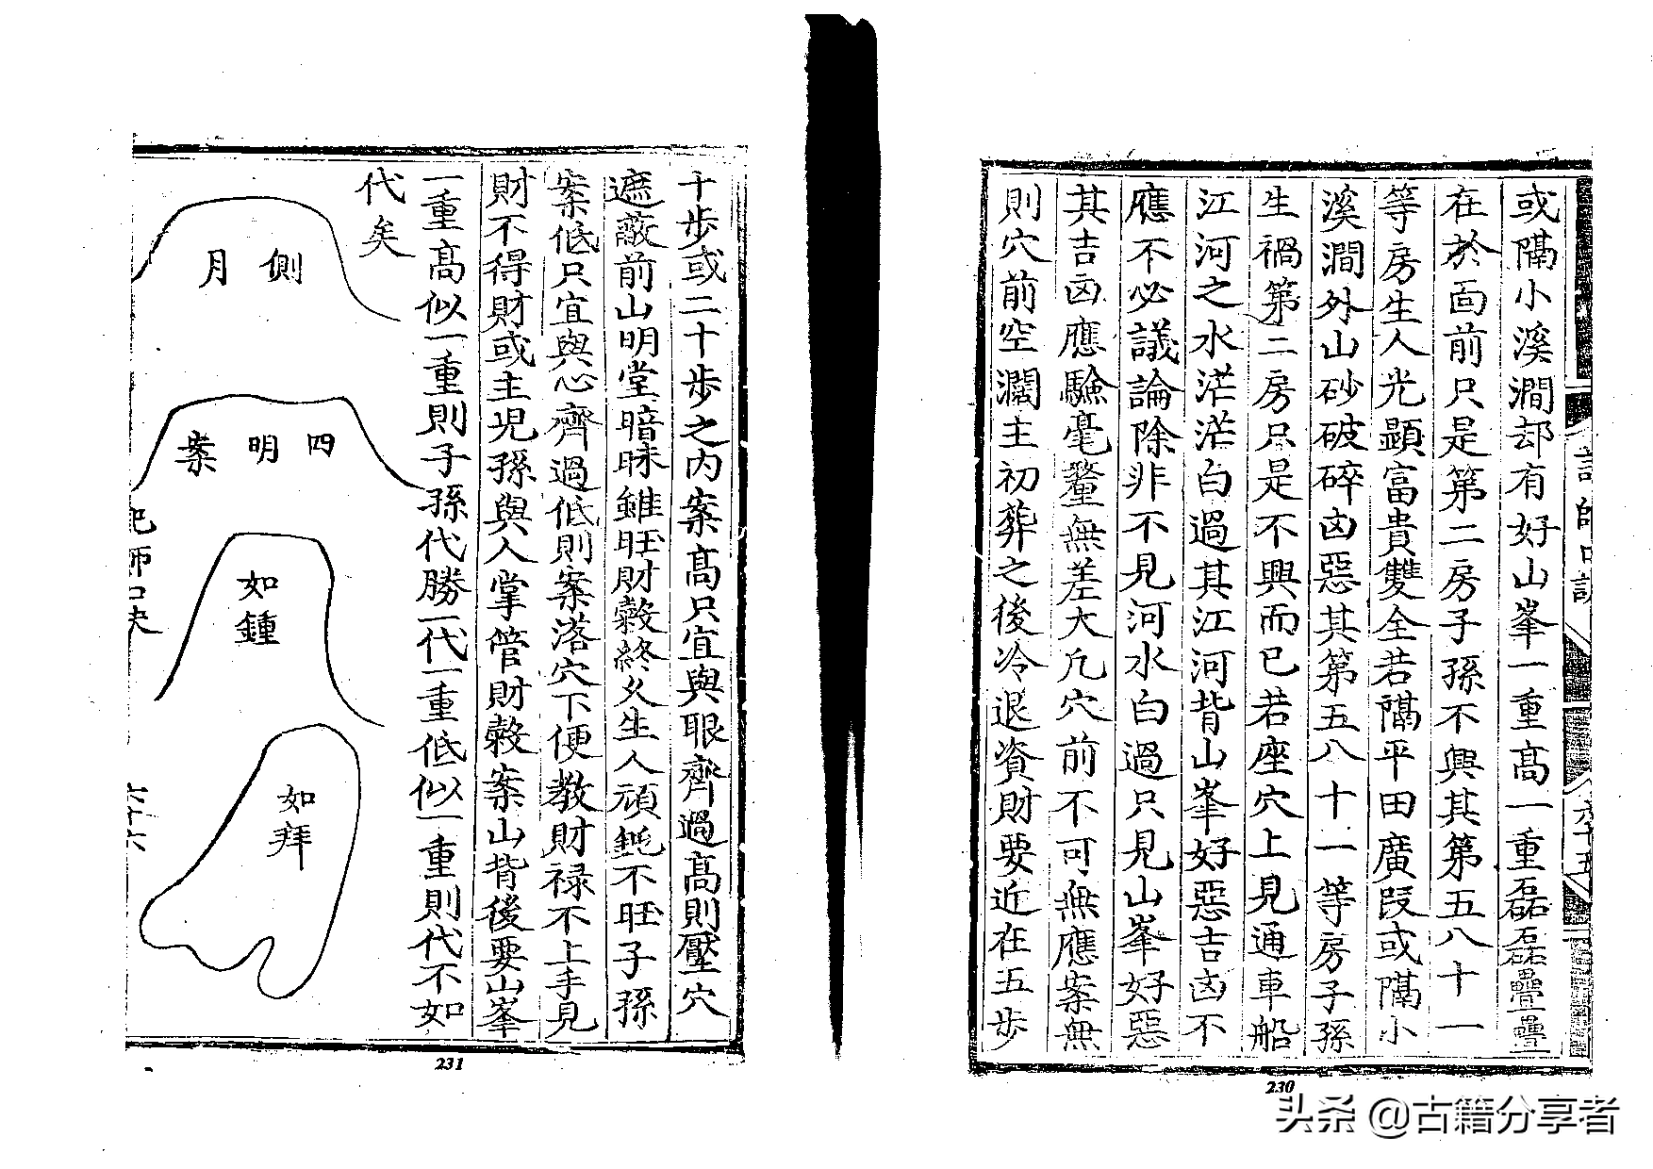 或隔小溪澗却有好山峯一重高一重磊磊疊疊
在於面前只是第二房子孫不興其第五八十一
等房生人光顯富貴雙全若隔平田廣段或隔小
溪澗外山砂破碎凶惡其第五八十一等房子孫
生禍第二房只是不興而已若座穴上見通車船
江河之水茫茫白過其江河背山峯好惡吉凶不
應不必議論除非不見河水白過只見山峯好惡
其吉凶應驗毫釐無差大凢穴前不可無應案無
則穴前空濶主初葬之後冷退資財要近在五步
230
十步或二十步之內案高只宜與眼齊過高則壓穴
遮蔽前山明堂暗昧雖旺財穀終久生人頑鈍不旺子孫
案低只宜與心齊過低則案落穴下便教財禄不上手見
財不得財或主兇孫與人掌管財穀案山背後要山峯
一重高似一重則子孫代勝一代一重低似一重則代不如
代矣
側月
四明案
如鍾
如拜
六十六
231
头条 @古籍分享者